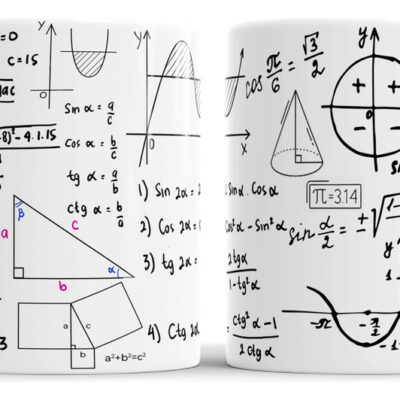 =0
c=15
y
x
8)²-4·1·15
Sin α = a/c
Cos α = b/c
tg α = a/b
ctg α = b/a
β
a
c
b
α
a
c
b
a²+b²=c²
3
y
0
x
1) Sin 2α = 2
2) Cos 2α =
3) tg 2α =
4) Ctg 2α
cos π/6 = √3/2
y
+ +
0
- -
Sin α · Cos α
π=3.14
Cos²α - Sin²α
sin α/2 = ±√1-
2tgα/1-tg²α
Ctg²α-1/2ctgα
y
1
-π
-π/2
-1